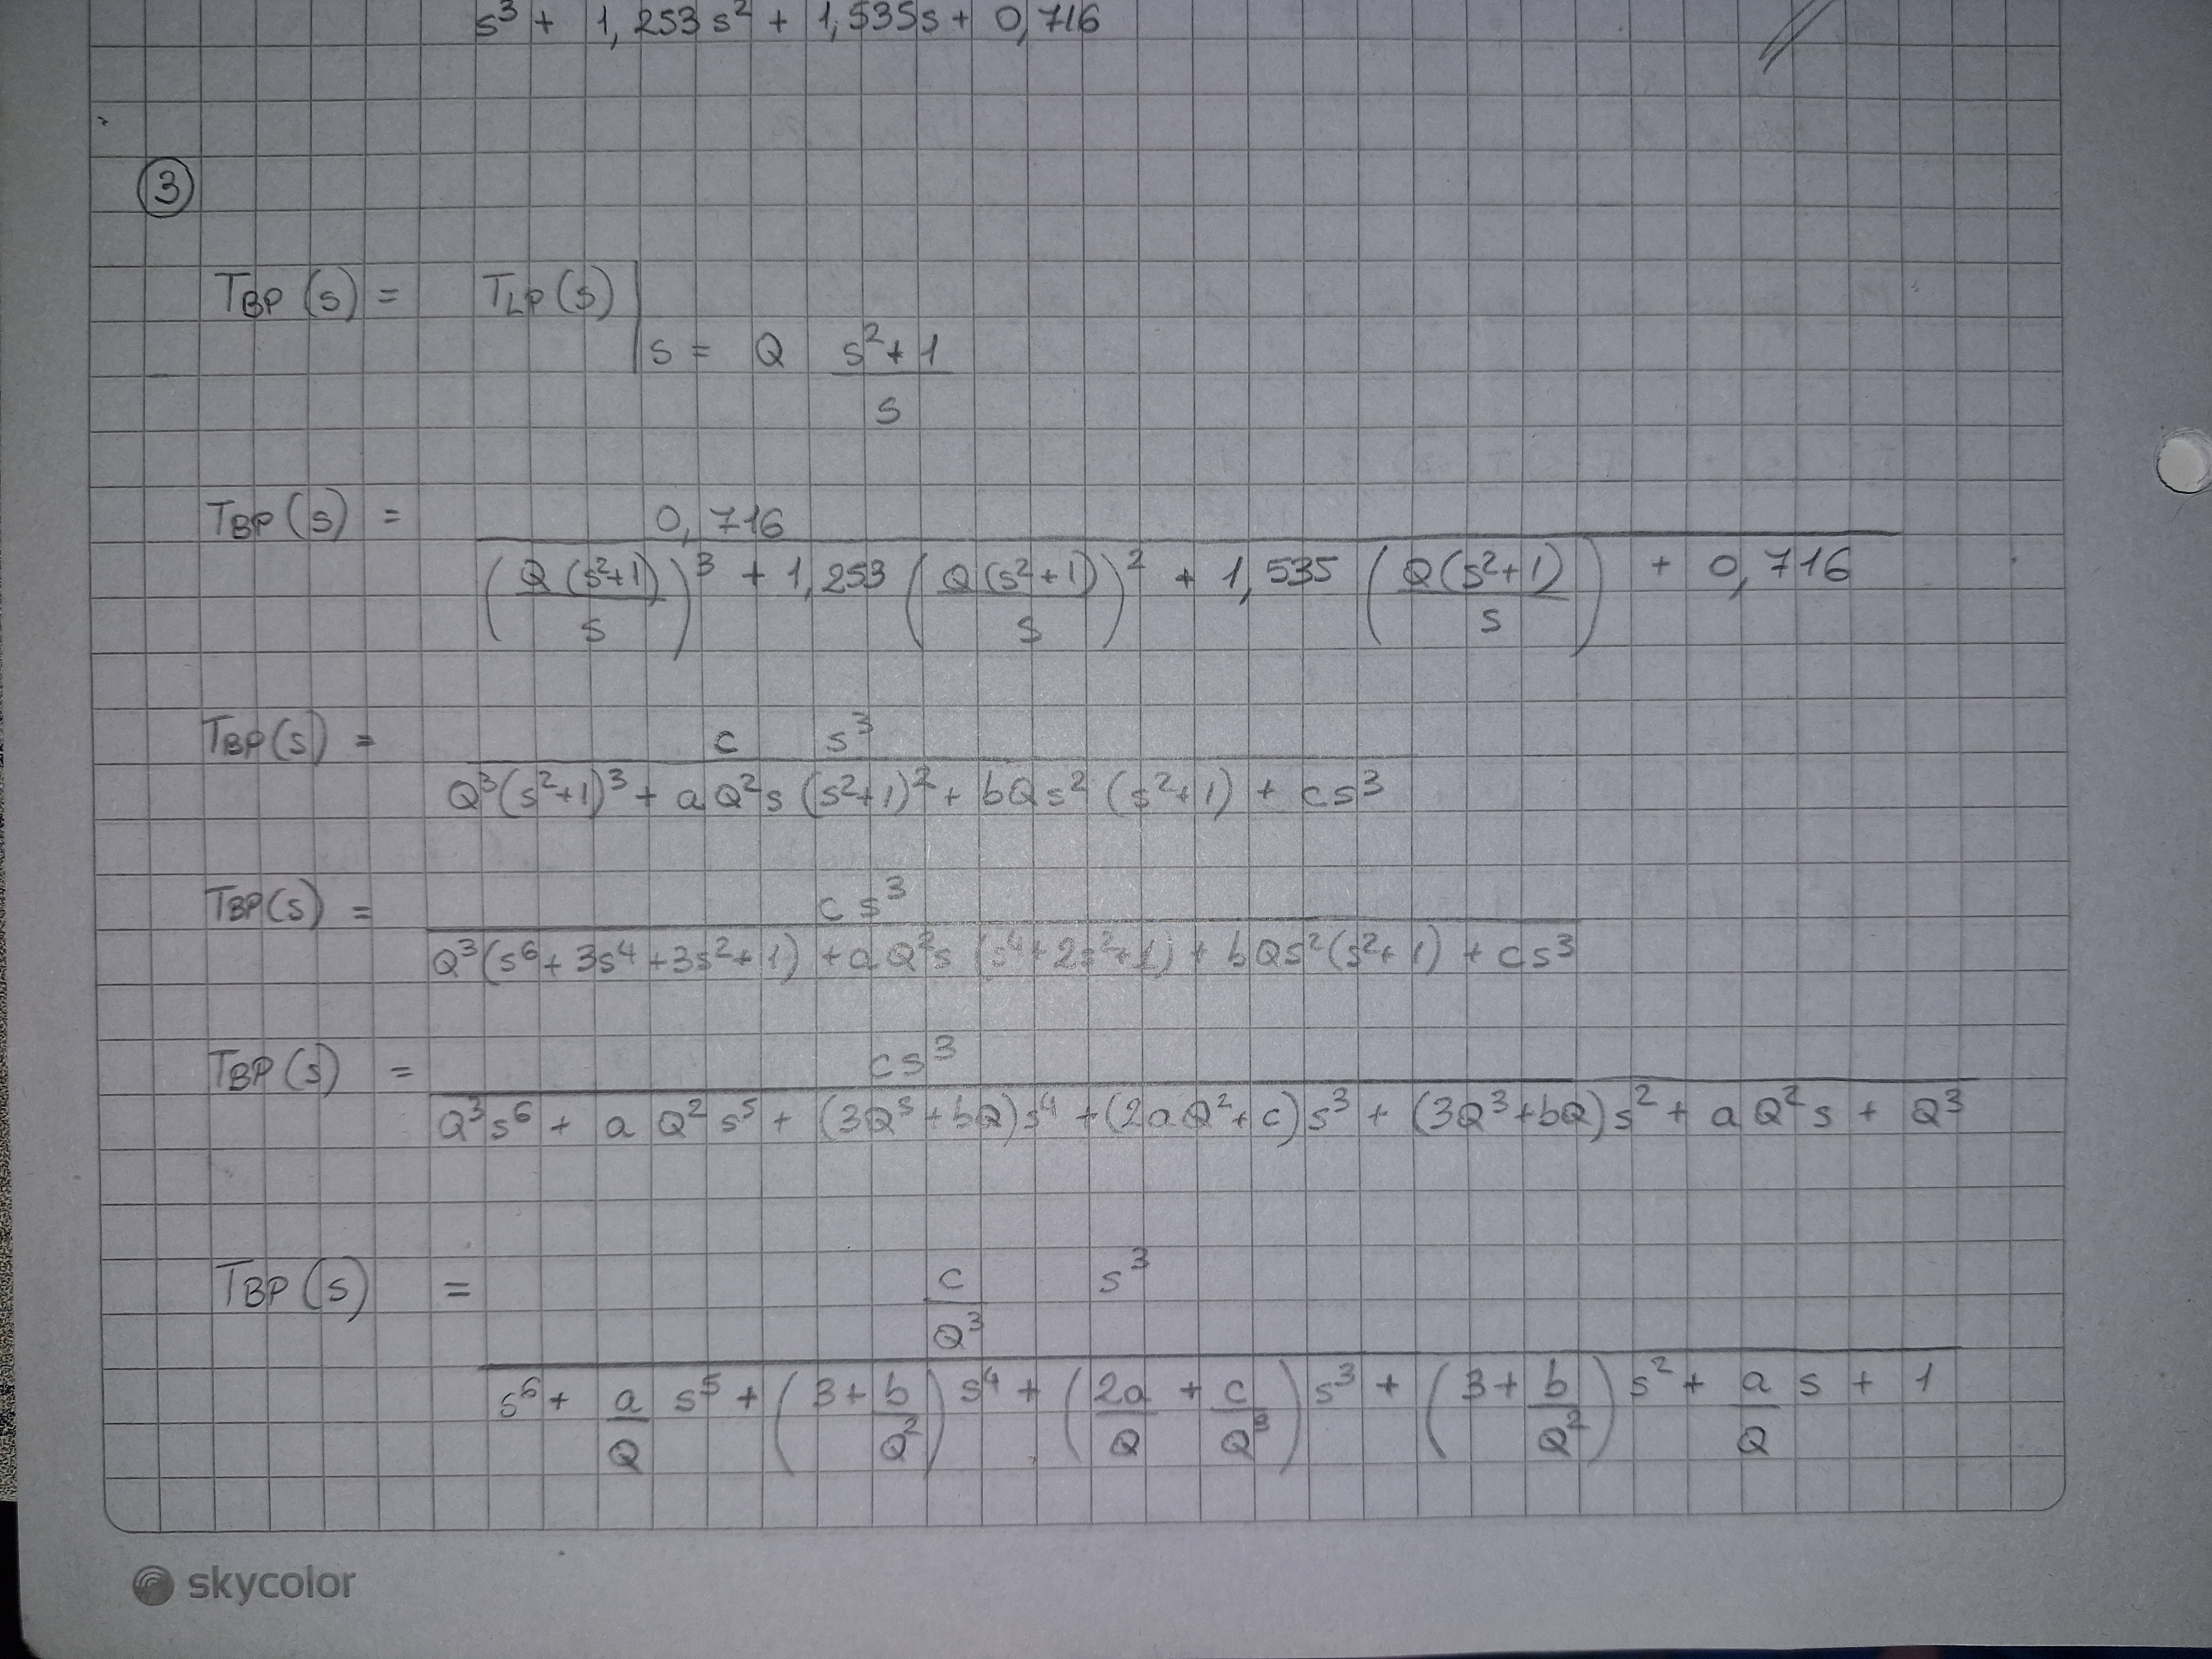 s³ + 1,253 s² + 1,535s + 0,716
3
TBP (s) = TLP (s) |
s = Q (s² + 1) / s
TBP (s) = 0,716 / ( (Q (s²+1) / s)³ + 1,253 (Q(s²+1) / s)² + 1,535 (Q(s²+1) / s) + 0,716 )
TBP(s) = c s³ / ( Q³(s²+1)³ + a Q²s (s²+1)² + bQs² (s²+1) + cs³ )
TBP(s) = c s³ / ( Q³(s⁶ + 3s⁴ + 3s² + 1) + a Q²s (s⁴ + 2s² + 1) + bQs²(s² + 1) + cs³ )
TBP(s) = cs³ / ( Q³s⁶ + a Q² s⁵ + (3Q³ + bQ)s⁴ + (2aQ² + c)s³ + (3Q³ + bQ)s² + aQ²s + Q³ )
TBP (s) = (c / Q³) s³ / ( s⁶ + (a / Q) s⁵ + (3 + b / Q²) s⁴ + (2a / Q + c / Q³) s³ + (3 + b / Q²) s² + (a / Q) s + 1 )
skycolor